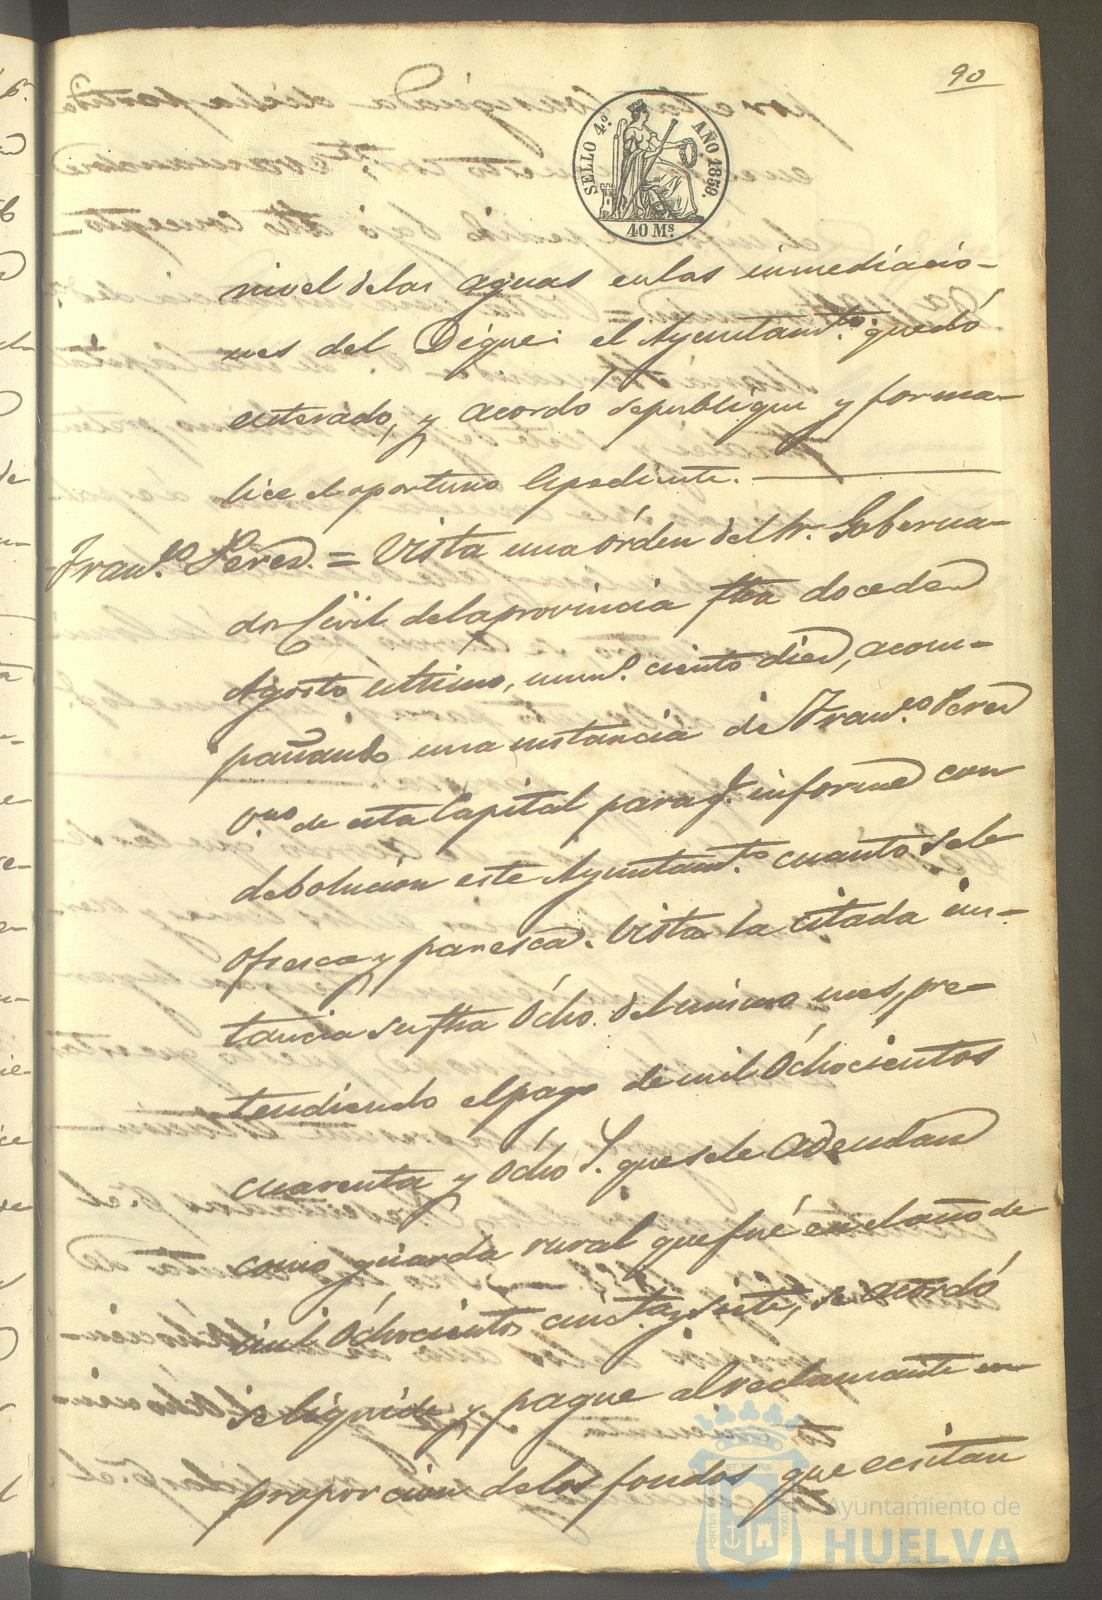 90
SELLO 4º. AÑO 1859.
40 Mˢ
nivel delas aguas enlas inmediacio-
nes del Dique: el Ayuntamᵗᵒ. quedó
enterado, y acordó sepublique y forma-
lice el oportuno Espediente.
Franᶜᵒ. Peres. = Vista una órden del Sr. Goberna-
dor Civil delaprovincia fha doce de
Agosto ultimo, numº. ciento dies, acom-
pañando una instancia de Franᶜᵒ. Peres
vⁿᵒ de esta Capital para q. informe con
debolucion este Ayuntamᵗᵒ. cuanto sele
ofresca y paresca. Vista la citada ins-
tancia su fha Ócho del mismo mes, pre-
tendiendo elpago de mil Óchocientos
cuarenta y Ócho r. que sele adeudan
como guarda rural que fué en el año de
mil Óchocientos cincᵗᵃ y siete, se acordó
se liquide y pague al reclamante en
proporcion delos fondos que ecsitan
PORTUS
CUSTODIA
Ayuntamiento de
HUELVA